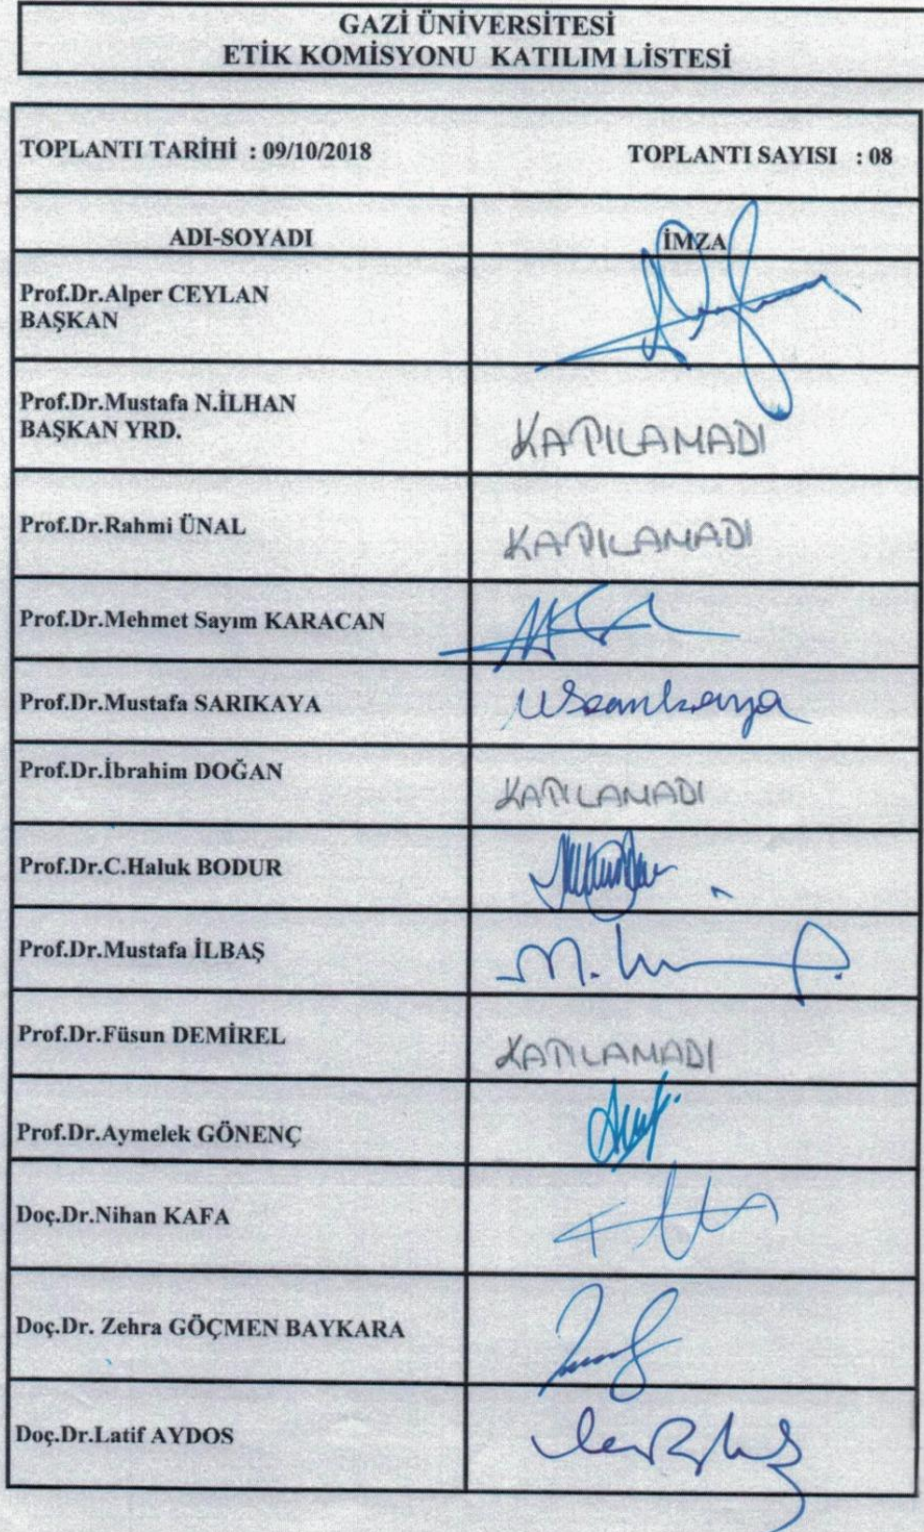 GAZİ ÜNİVERSİTESİ
ETİK KOMİSYONU KATILIM LİSTESİ
TOPLANTI TARİHİ : 09/10/2018 TOPLANTI SAYISI : 08
ADI-SOYADI İMZA
Prof.Dr.Alper CEYLAN
BAŞKAN
Prof.Dr.Mustafa N.İLHAN
BAŞKAN YRD.
KATILAMADI
Prof.Dr.Rahmi ÜNAL
KATILAMADI
Prof.Dr.Mehmet Sayım KARACAN
Prof.Dr.Mustafa SARIKAYA
Prof.Dr.İbrahim DOĞAN
KATILAMADI
Prof.Dr.C.Haluk BODUR
Prof.Dr.Mustafa İLBAŞ
Prof.Dr.Füsun DEMİREL
KATILAMADI
Prof.Dr.Aymelek GÖNENÇ
Doç.Dr.Nihan KAFA
Doç.Dr. Zehra GÖÇMEN BAYKARA
Doç.Dr.Latif AYDOS